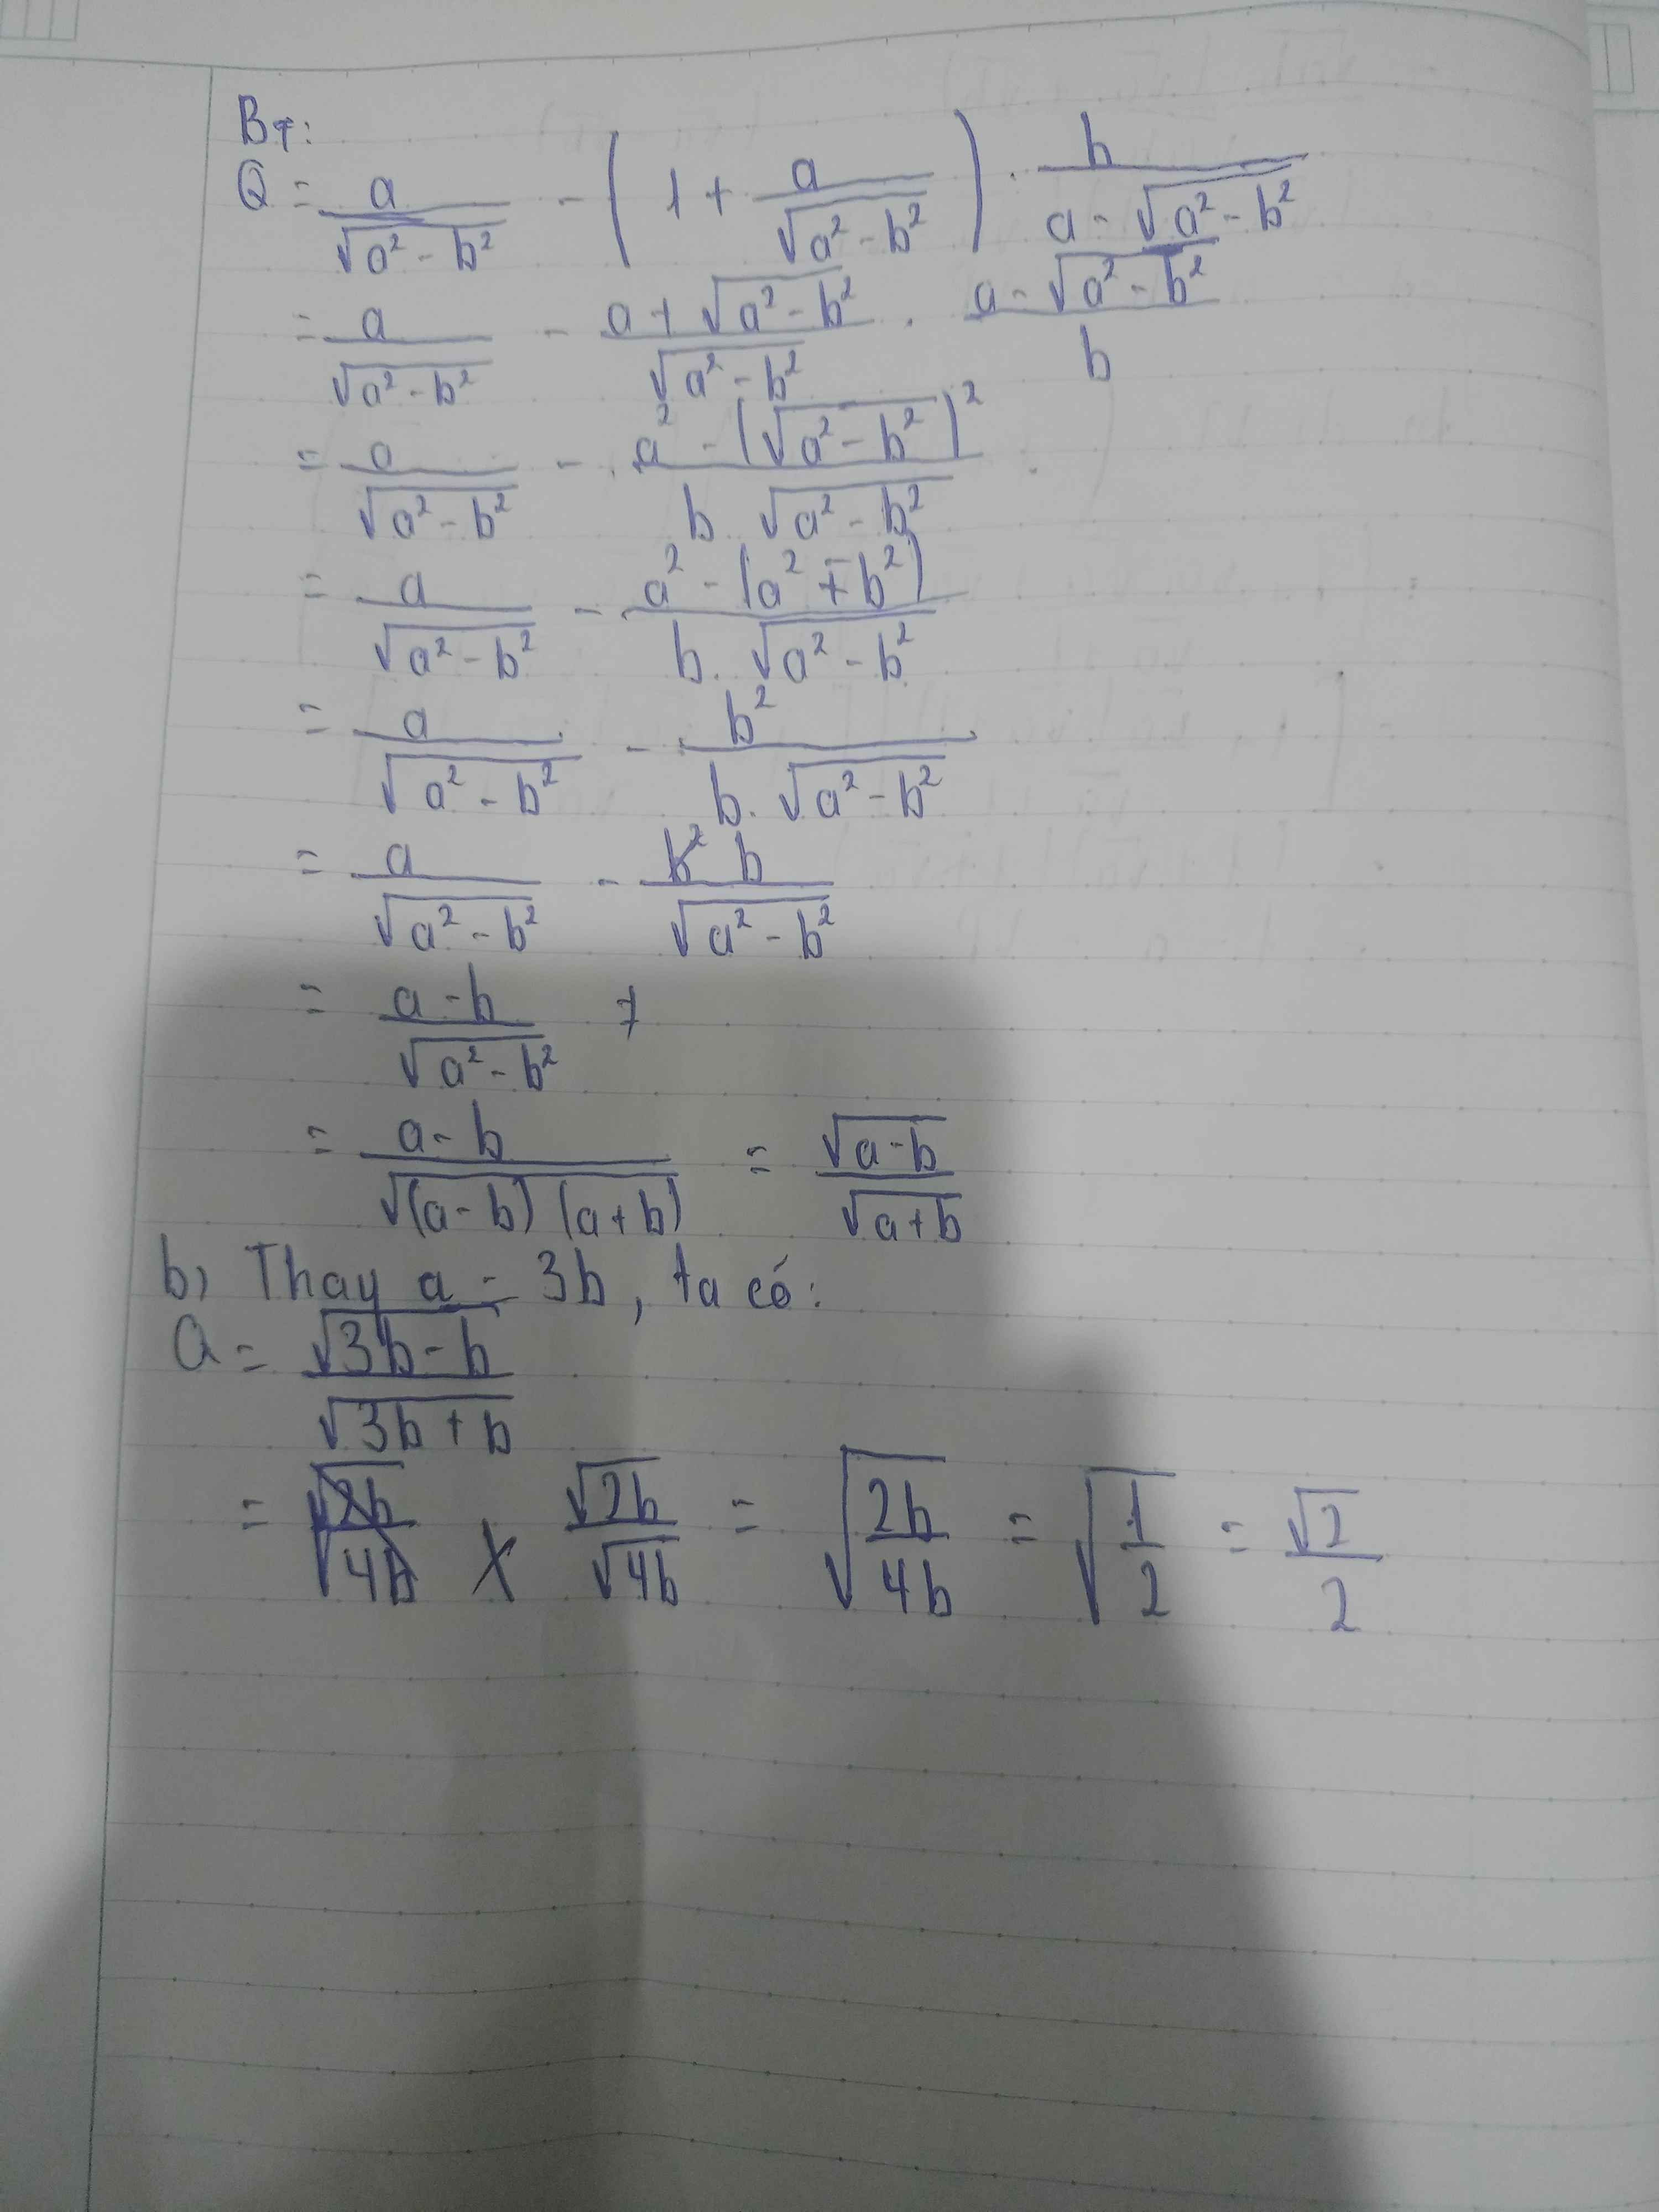 B7:
Q = a/√(a² - b²) - (1 + a/√(a² - b²)) . b/(a - √(a² - b²))
= a/√(a² - b²) - (a + √(a² - b²))/√(a² - b²) . (a - √(a² - b²))/b
= a/√(a² - b²) - (a² - (√(a² - b²))²)/(b. √(a² - b²))
= a/√(a² - b²) - (a² - (a² - b²))/(b. √(a² - b²))
= a/√(a² - b²) - b²/(b. √(a² - b²))
= a/√(a² - b²) - b/√(a² - b²)
= (a - b)/√(a² - b²)
= (a - b)/√((a - b) (a + b)) = √(a - b)/√(a + b)
b) Thay a = 3b, ta có:
Q = √(3b - b)/√(3b + b)
= √(2b)/√(4b) = √(2b/4b) = √(1/2) = √2/2